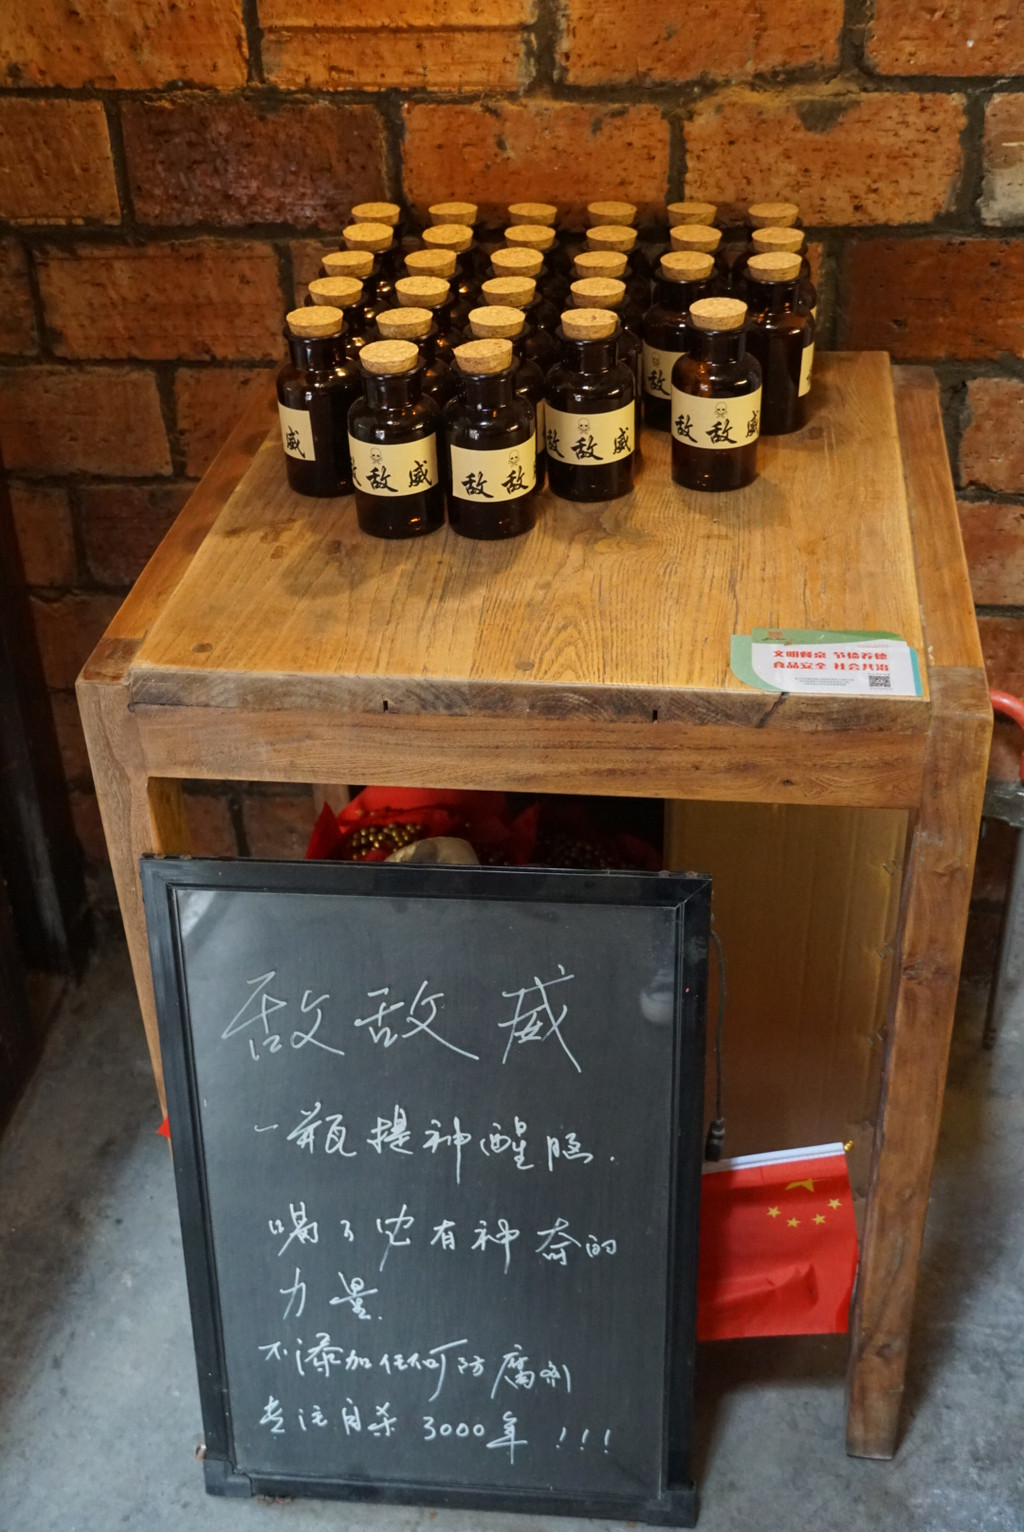 威
敌敌威
敌敌
敌敌威
敌
敌敌威
文明餐桌 节俭养德
食品安全 社会共治
敌敌威
一瓶提神醒脑.
喝了它有神奇的
力量.
不添加任何防腐剂
专注自杀3000年!!!